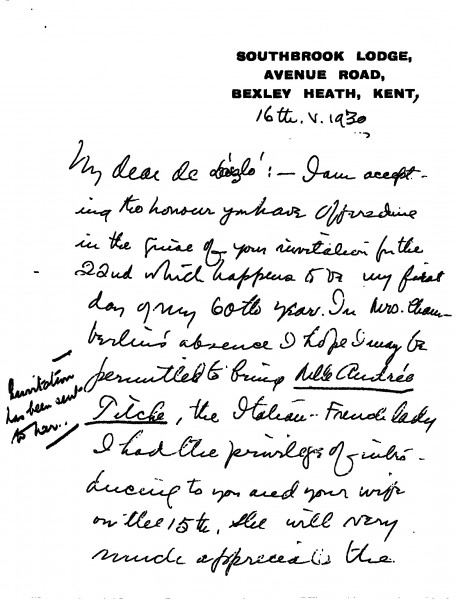 SOUTHBROOK LODGE,
AVENUE ROAD,
BEXLEY HEATH, KENT,
16th. V. 1930
My dear de László :— I am accept-
ing the honour you have offered me
in the guise of your invitation for the
22nd which happens to be my first
day of my 60th year. In Mrs. Cham-
berlin's absence I hope I may be
permitted to bring Mlle Andrée
Titcke, the Italian-French lady
I had the privilege of intro-
ducing to you and your wife
on the 15th, she will very
much appreciate the
Invitation
has been sent
to her..